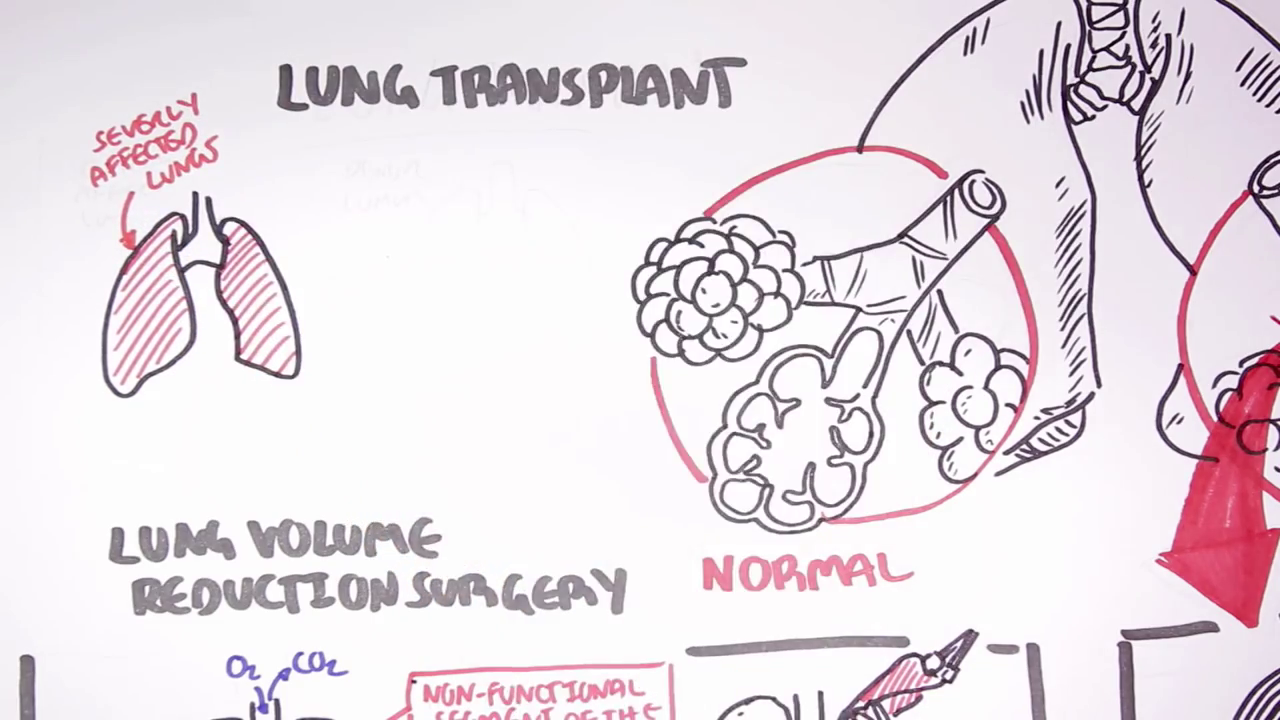 LUNG TRANSPLANT
SEVERLY
AFFECTED
LUNGS
LUNG VOLUME
REDUCTION SURGERY
NORMAL
O2
CO2
NON-FUNCTIONAL
SEGMENT OF THE